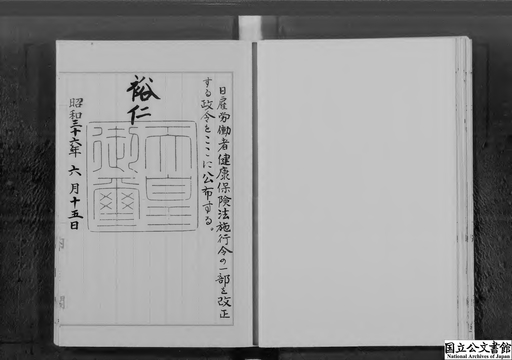 日雇労働者健康保険法施行令の一部を改正
する政令をここに公布する。
裕仁
天皇
御璽
昭和三十六年六月十五日
国立公文書館
National Archives of Japan